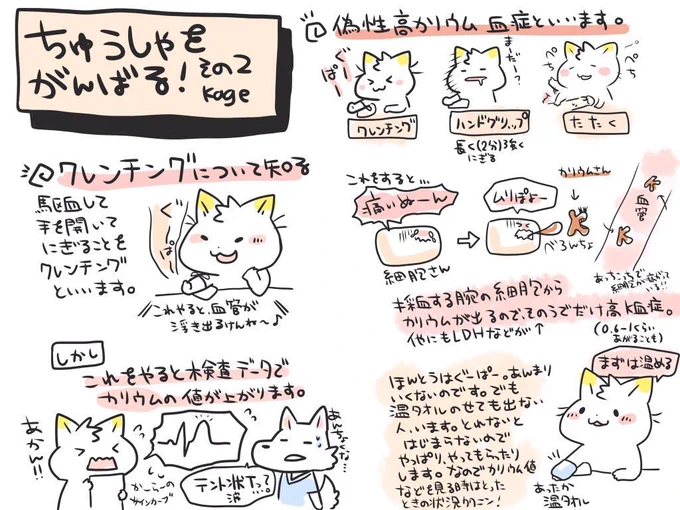 ちゅうしゃを
がんばる！その2
Kage
クレンチングについて知る
駆血して
手を開いて
にぎることを
クレンチング
といいます。
ぐっ
ぱっ
これやると、血管が
浮き出るけんね〜♪
しかし
これをやると検査データで
カリウムの値が上がります。
あかん!!
かーらーの
サインカーブ
テント状Tっす？
波
あんなくな…
偽性高カリウム血症といいます。
ぐー
ぱー
まーだー？
ぺち
ぺち
クレンチング
ハンドグリップ
たたく
長く(2分)強く
にぎる
これをすると…
痛いぬーん
細胞さん
ムリぽよー
カリウムさん
べろんちょ
血管
K
K
あっちこっちで
細胞が広がって
いる!!
採血する腕の細胞から
カリウムが出るので、そのうでだけ高K血症。
他にもLDHなどが↑
(0.6〜1くらい
あがることも)
ほんとうはぐーぱー、あんまり
いくないのです。でも
温タオルのせても出ない
人、います。とれないと
はじまらないので
やっぱり、やってもらったり
します。なのでカリウム値
などを見る時はとった
ときの状況カクニン！
まずは温める
あったか
温タオル